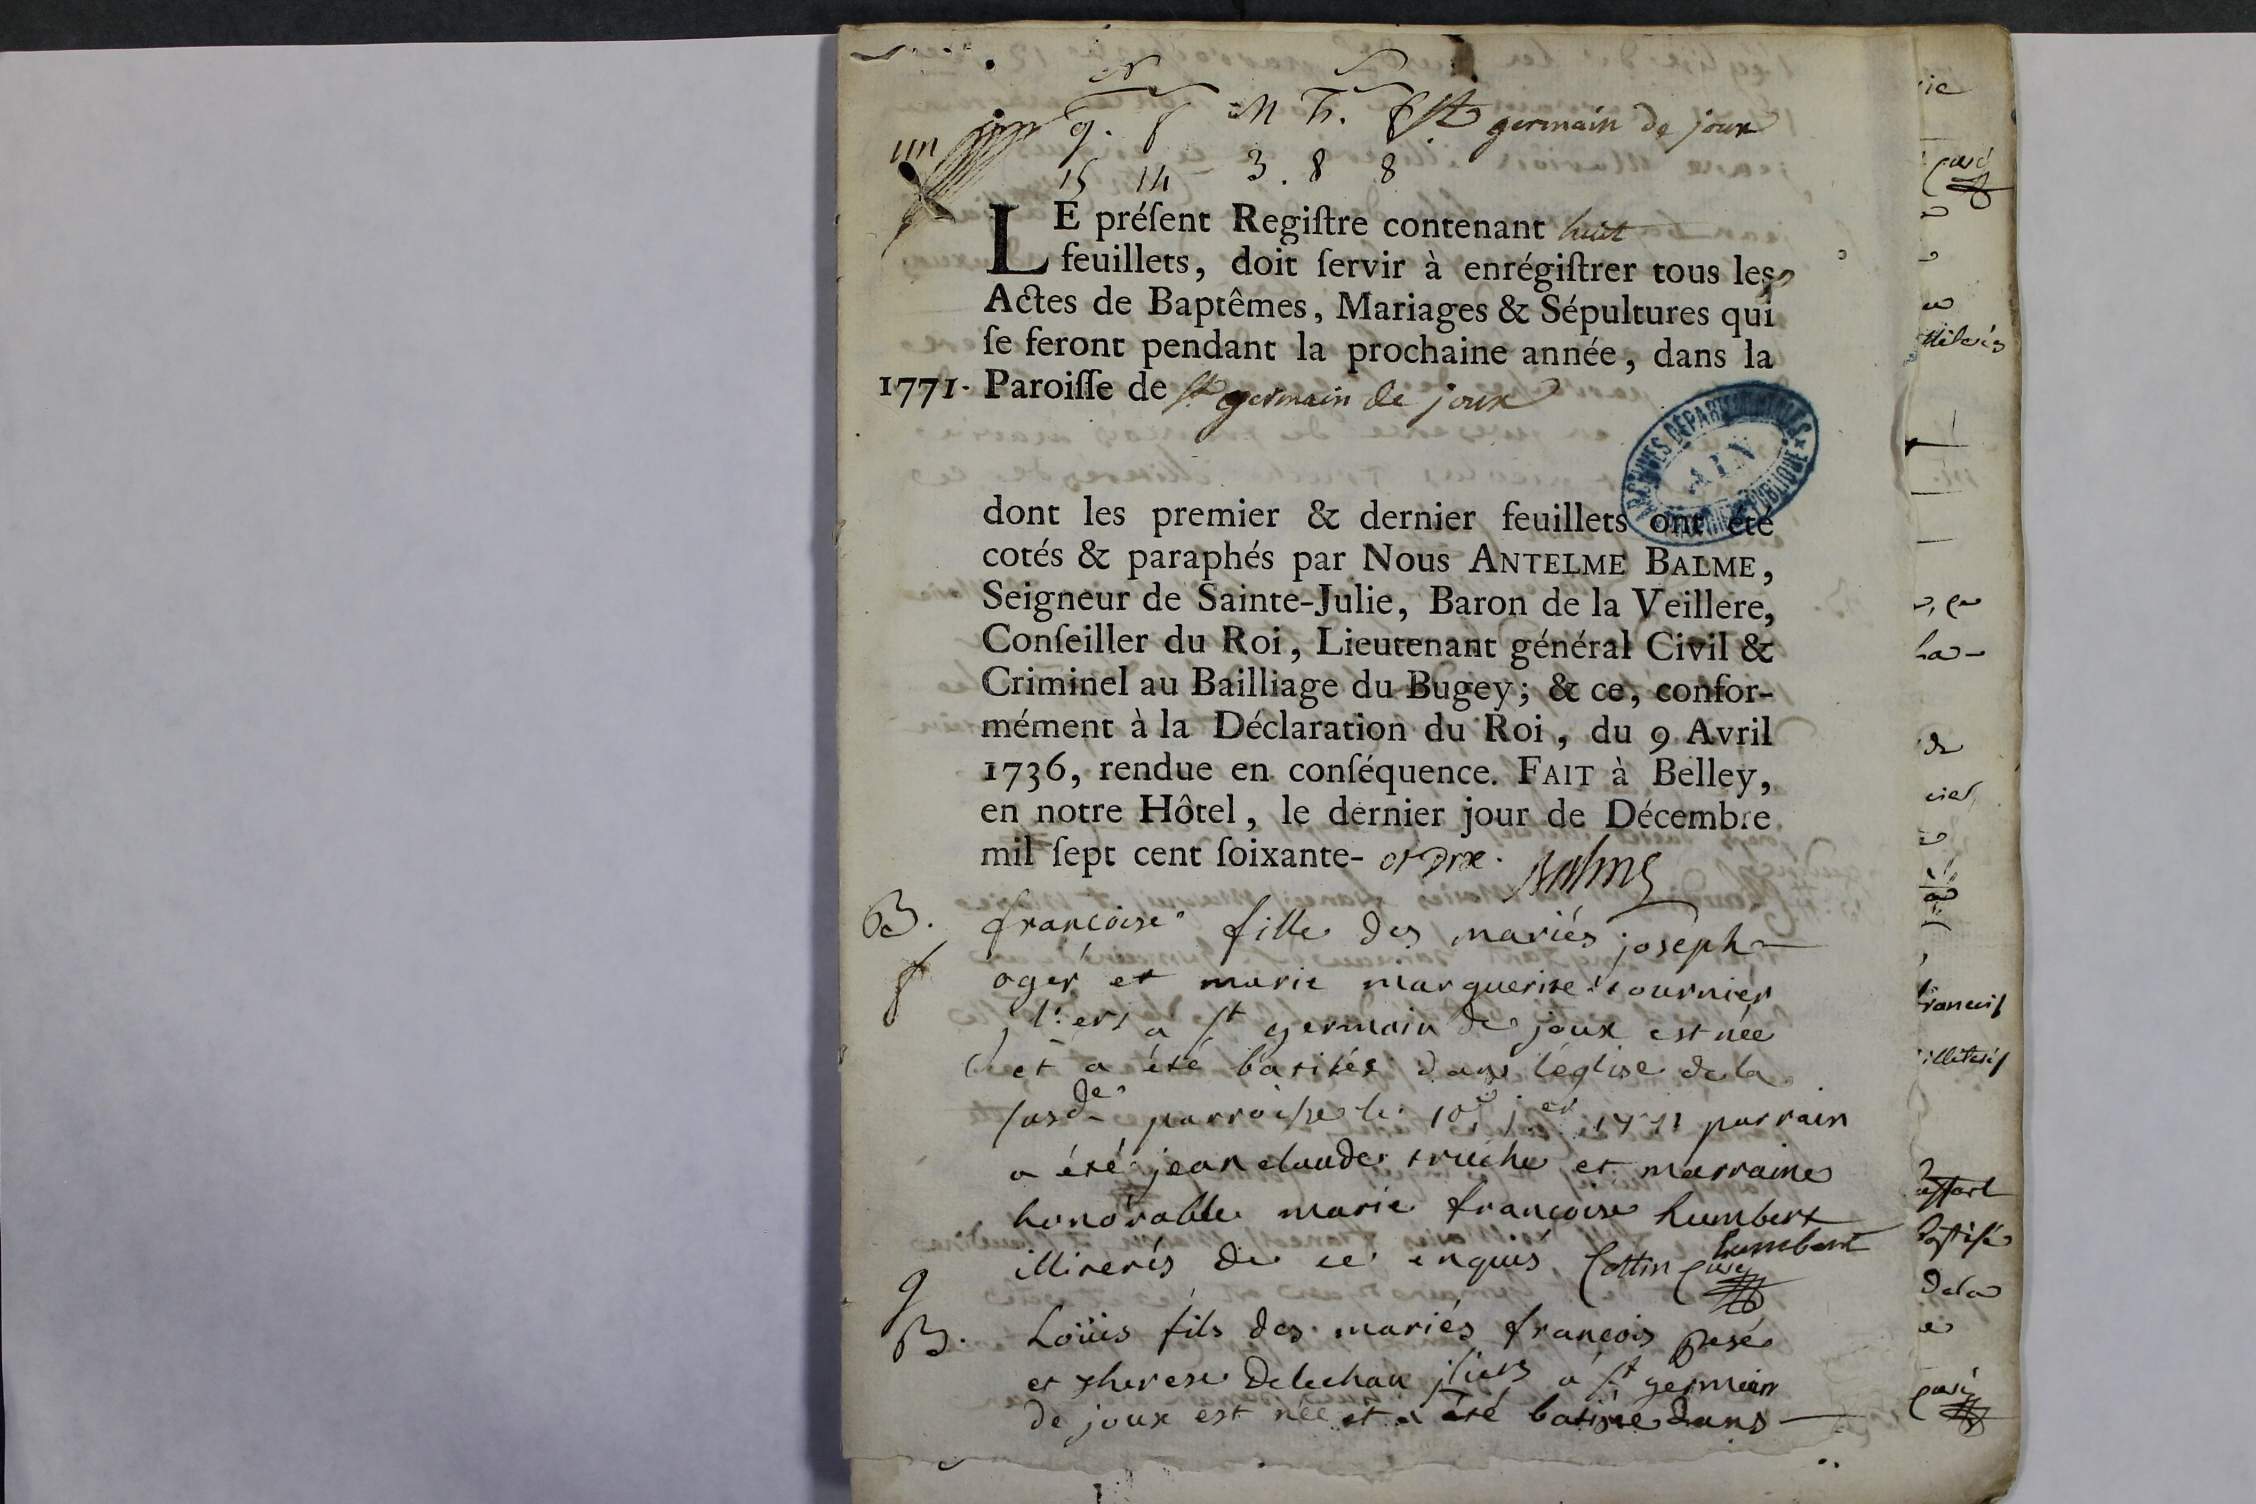 N
g. f M h. f St germain de joux
un
15 14 3. 8 8
LE préſent Regiſtre contenant huit
feuillets, doit ſervir à enrégiſtrer tous les
Actes de Baptêmes, Mariages & Sépultures qui
ſe feront pendant la prochaine année, dans la
1771. Paroiſſe de St germain de joux
ARCHIVES DÉPARTEMENTALES
AIN
dont les premier & dernier feuillets ont été
cotés & paraphés par Nous ANTELME BALME,
Seigneur de Sainte-Julie, Baron de la Veillere,
Conſeiller du Roi, Lieutenant général Civil &
Criminel au Bailliage du Bugey; & ce, confor-
mément à la Déclaration du Roi, du 9 Avril
1736, rendue en conſéquence. FAIT à Belley,
en notre Hôtel, le dernier jour de Décembre
mil ſept cent ſoixante- et dix. Balme
B. francoise fille des mariés joseph
f oger et marie marguerite tournier
à St germain de joux est née
et a été batisée dans l'église de la
susde parroisse le 10e jer 1771 parrain
a été jean claude truche et marraine
honorable marie francoise humbert
illiterés de ce enquis Cottin curé humbert
g
B. Loüis fils des mariés francois pesé
et therese delechau à St germain
de joux est née et a été batisé dans